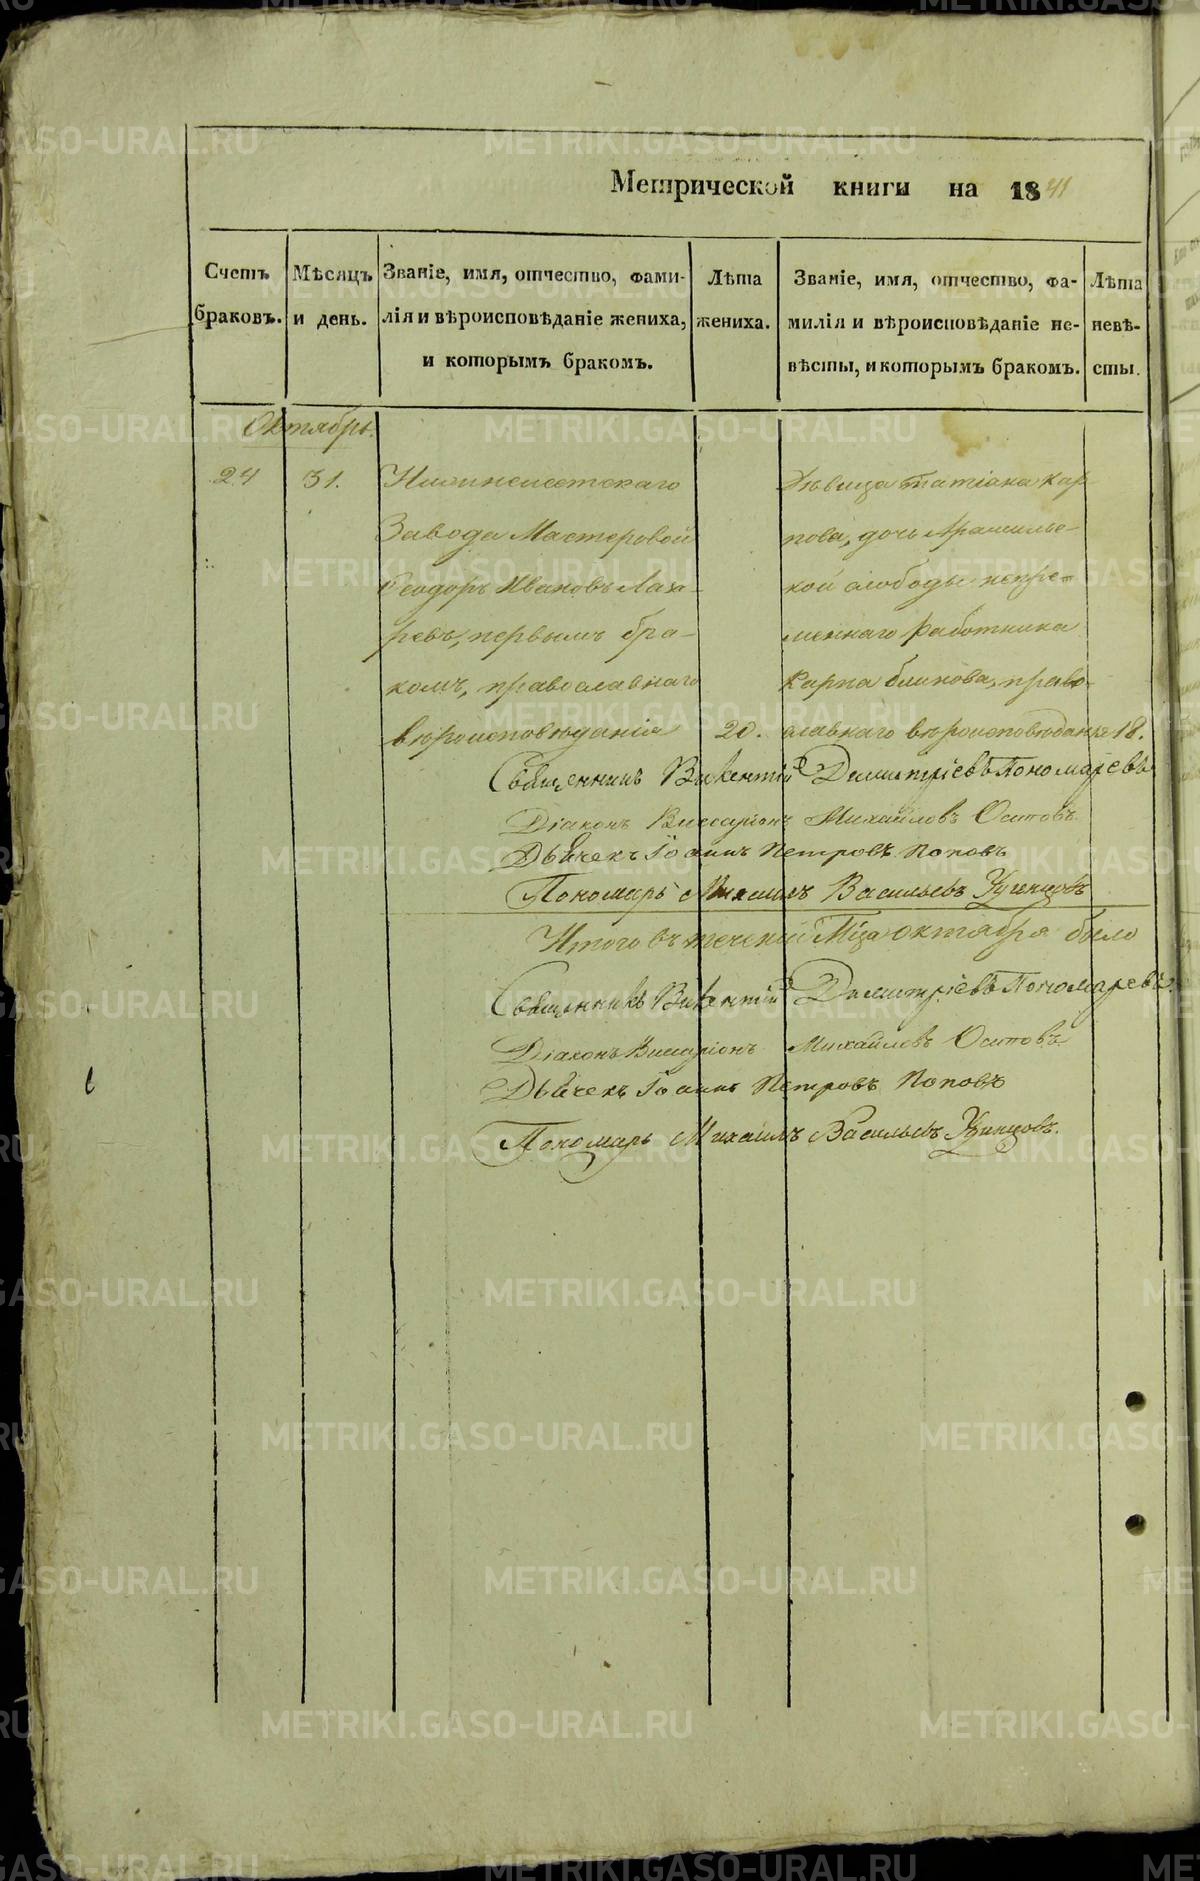 Метрической книги на 1841
Счетъ браковъ.
Мѣсяцъ и день.
Званіе, имя, отчество, фами-
лія и вѣроисповѣданіе жениха,
и которымъ бракомъ.
Лѣта
жениха.
Званіе, имя, отчество, фа-
милія и вѣроисповѣданіе не-
вѣсты, и которымъ бракомъ.
Лѣта
невѣ-
сты.
Октябрь.
24
31.
Нижнеисетскаго
Завода Мастеровой
Ѳеодоръ Ивановъ
ревъ, первымъ бра-
комъ, православнаго
вѣроисповѣданія
20.
Дѣвица Татіана Кар
пова, дочь Арамильс-
кой слободы непре-
меннаго работника
Карпа Блинова, право-
славнаго вѣроисповѣданія
18.
Священникъ Викентій Димитріевъ Пономаревъ
Діаконъ Виссаріонъ Михайловъ
Дьячекъ Іоаннъ Петровъ Поповъ
Пономарь Михаилъ Васильевъ
Итого въ теченіи Мца октября было
Священникъ Викентій Димитріевъ Пономаревъ.
Діаконъ Виссаріонъ Михайловъ
Дьячекъ Іоаннъ Петровъ Поповъ
Пономарь Михаилъ Васильевъ
METRIKI.GASO-URAL.RU